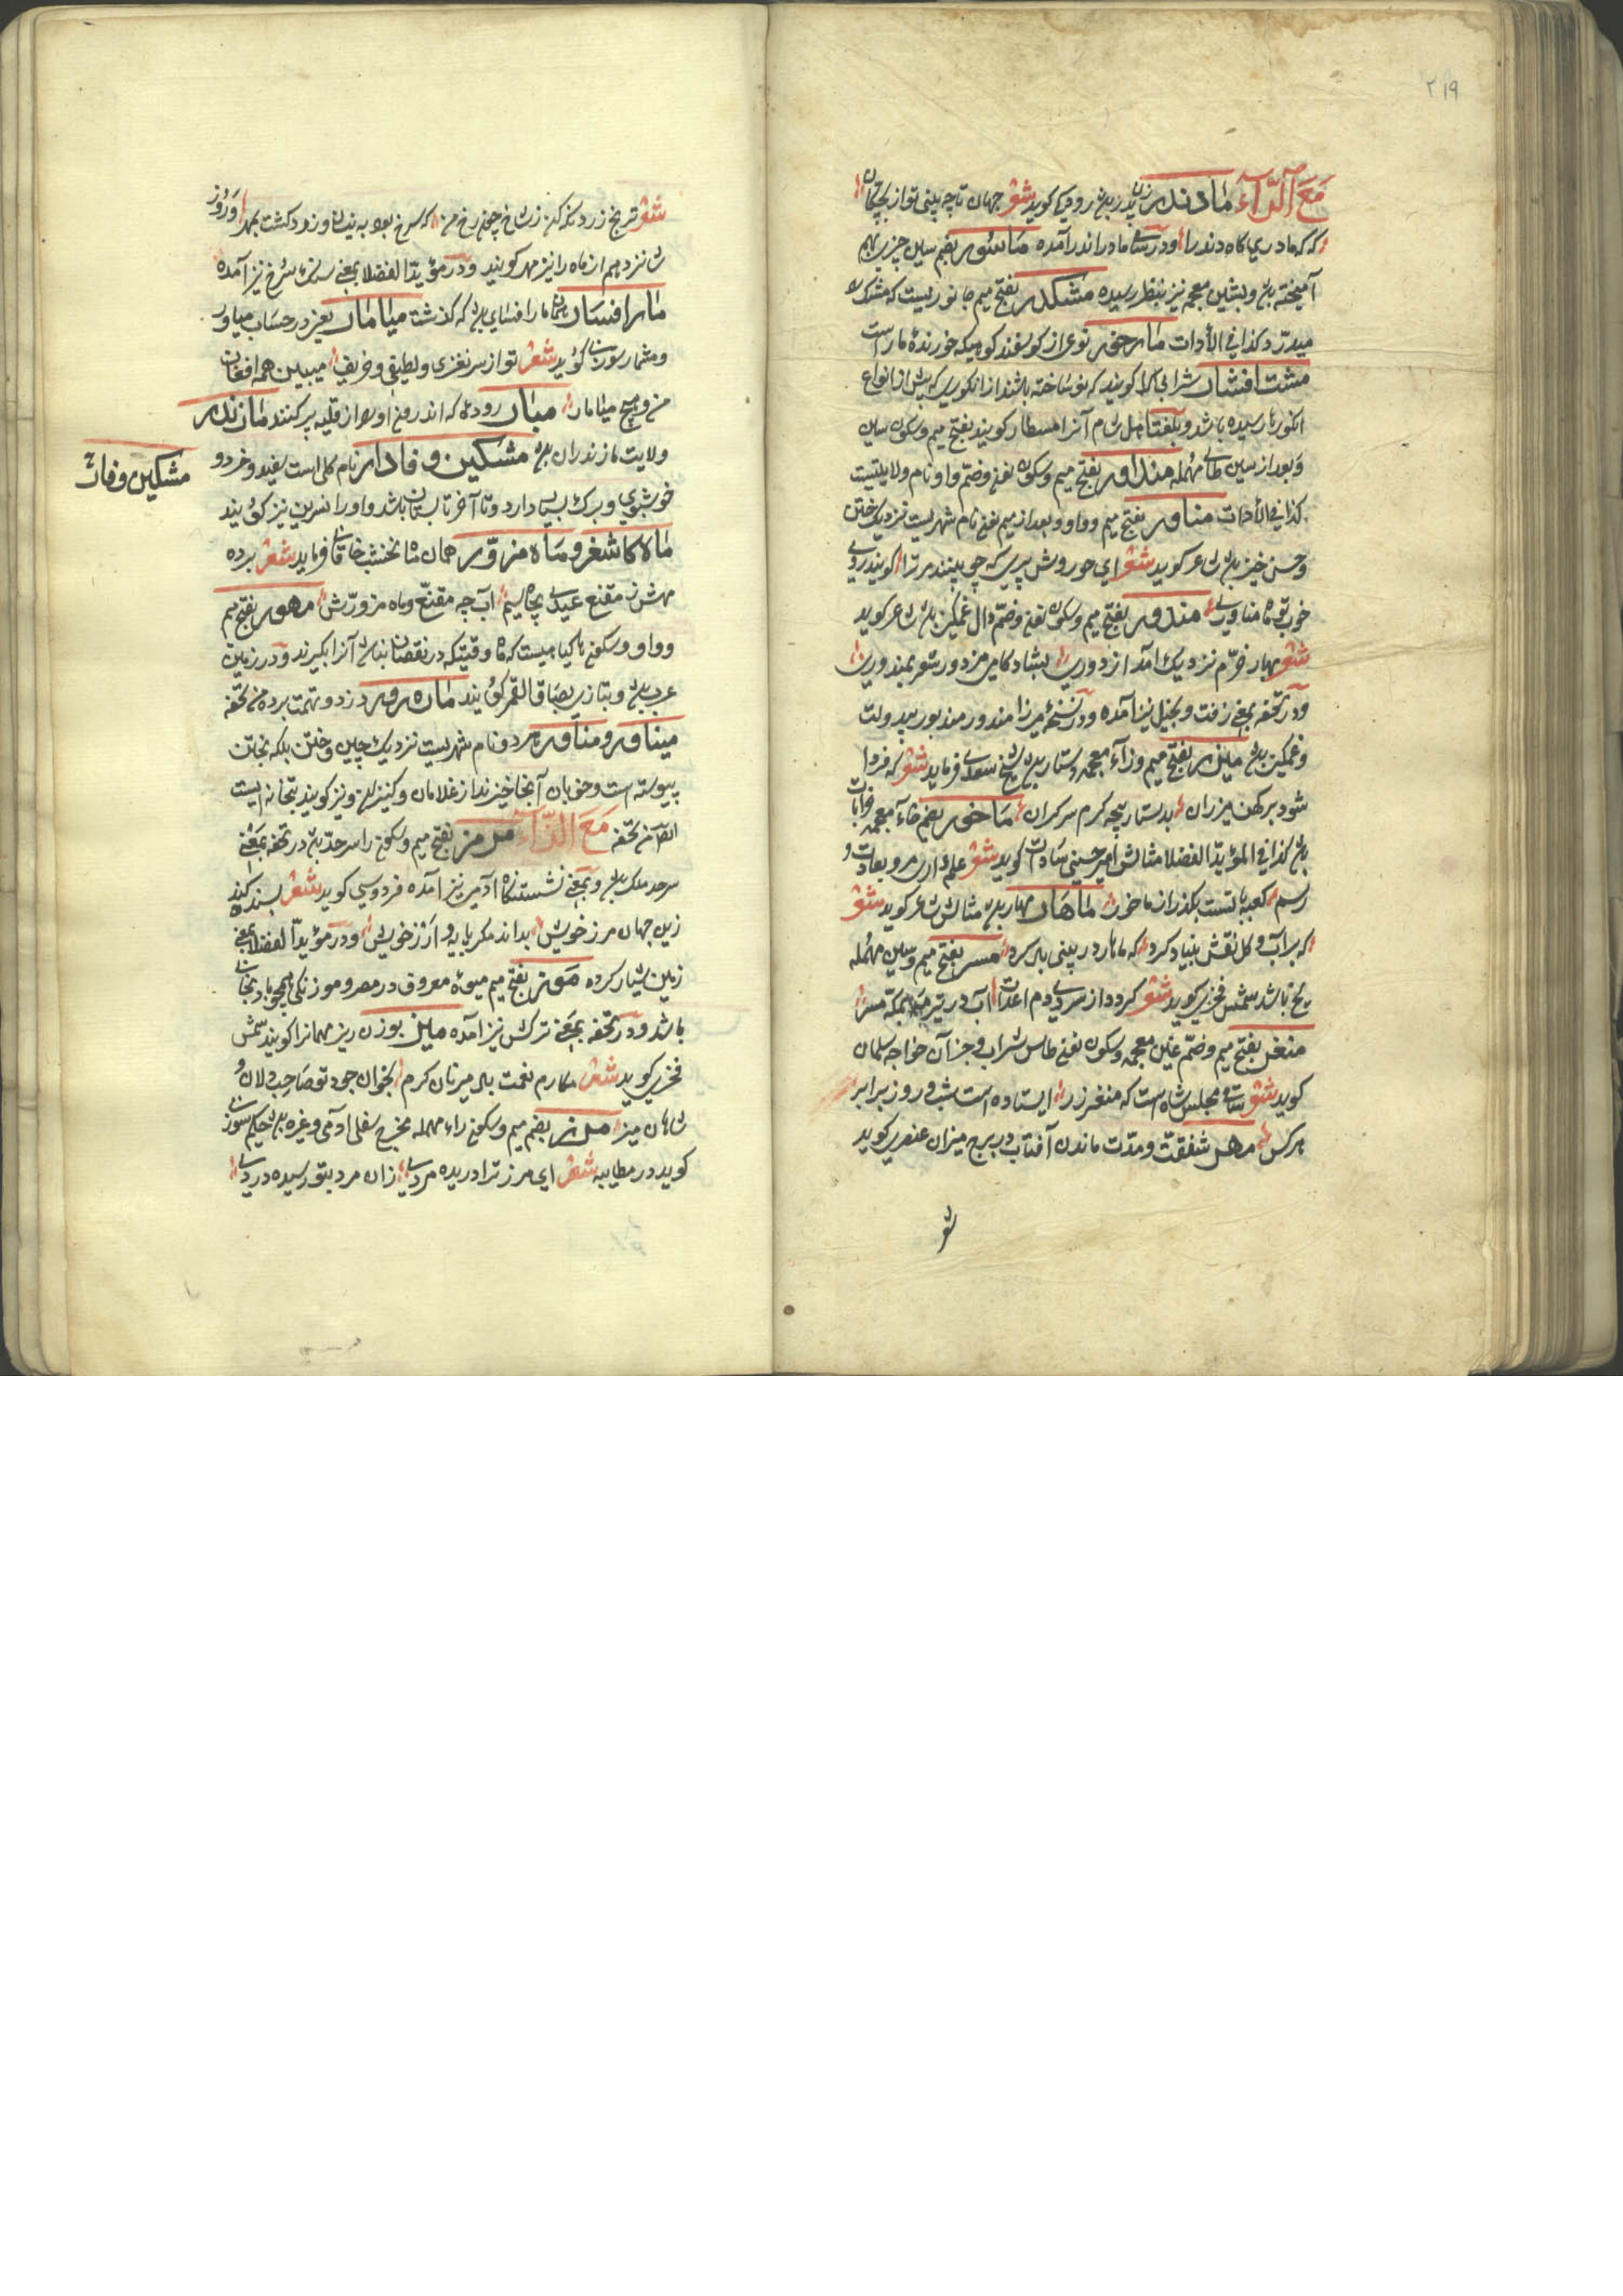 ۲۱۹
مَعَ الرَّآءِ مادندر زن پدر باشد رودکی گوید شعر جهان تا چه بینی تو از بچگان
که که مادری گاه دندرا ودر مادراندر آمده ماسور بضم سین چیزی بهم
آمیخته باشد وبشین معجمه نیز بنظر رسیده مشکدر بفتح میم جانوریست که مشک را
میدزد کذا فی الأدات مارخور نوع از کوسفند کوهیکه خورندهٔ مارست
مشت افشار شرابی را کویند که نو ساخته باشند از انکوری که پیش از انواع
انکورها رسیده باشد وبلغت اهل شام آنرا مسطار کویند بفتح میم وسکون سین
وبعد از سین طای مهمله منداور بفتح میم وسکون نون وضم واو نام ولایتیست
کذا فی الأدات مناور بفتح میم وواو وبعد از میم نون نام شهریست نزدیک ختن
وحسن خیز باشد شاعر کوید شعر ای حوروش پری که چو بینند مر ترا کویند روی
خوب تو ماه مناوری مندور بفتح میم وسکون نون وضم دال غمگین باشد شاعر کوید
شعر بهار خرّم نزدیک آمد از دوری بشادکامی مزدور شو بمندوری
ودر تحفه بمعنی زفت وبخیل نیز آمده ودر نسخهٔ میرزا مندور مندبور بیدولت
وغمکین باشد میزر بفتح میم وزآء معجمه دستار باشد شیخ سعدی فرماید شعر که فردا
شود بر کهن میزران بدستار پنجه کزم سرکران ماخور بضم خآء معجمه خرابات
باشد کذا فی المؤید الفضلا مثالش امیر حسینی سادات کوید شعر
رسم کعبه تست بگذر از ماخور ماهار مهار باشد مثالش شاعر کوید شعر
که بر آب وکل نقش بنیاد کرد که ماهار در بینی باد کرد مسر بفتح میم وسین مهمله
یخ باشد شمس فخری کوید شعر کردد از سردی دم اعدات آب در تیر مه بمکه مسر
منغر بفتح میم وضم غین معجمه وسکون نون طاس شراب وجز آن خواجه سلمان
کوید شعر ساقی مجلس شاه است که منغر زر ایستاده است شب وروز برابر
برکس مهر شفقت ومدّت ماندن آفتاب در برج میزان عنصری کوید
شعر
شعر ترنج زرد نکه کن ز شاخ چون رخ من که سرخ بود به نیسان وزرد گشت بمهر وروز
شانزدهم از ماه را نیز مهر کویند ودر مؤید الفضلا بمعنی سنک سرخ نیز آمده
مارافسار همان مارافسای باشد که کذشت میامار یعنی در حساب میاور
ومشمار سوزنی کوید شعر تو از سر نغزی ولطیفی وظریفی میبین همه افغان
من وهیچ میامار مبار رودهٔ که اندرون اورا از قلیه پر کنند مازندر
ولایت مازندران باشد مشکین وفادار نام کلی است سفید وخرد و
خوشبوی وبرک بسیار دارد وتا آخر تابستان باشد واو را نسرین نیز کویند
مشکین وفادار
ماه کاشغر وماه مزوّر همان ماه نخشب خاقانی فرماید شعر برده
مهش ز مقنع عیدی بچاه سیم آب چه مقنّع وماه مزوّرش مهور بفتح میم
وواو وسکون ها کیاهیست که تا وقتیکه در نقصان باشد آنرا بگیرند ودر زمین
عرب باشد وبتازی بصاق القمر کویند مارهور دزد وتهمت برده من تحفه
میناور ومناور هر دو نام شهریست نزدیک چین وختن بلکه بختن
پیوسته است وخوبان آنجا خیزند از غلامان وکنیزان ونیز کویند بتخانه ایست
ایضا من تحفه مَعَ الزّآء مرز بفتح میم وسکون را سرحدّ باشد در تحفه بمعنی
سرحد ملک باشد وبمعنی نشستنگاه آدمی نیز آمده فردوسی کوید شعر بسنده کند
زین جهان مرز خویش بداند مکر پایه وارز خویش ودر مؤید الفضلا بمعنی
زمین شیار کرده موز بفتح میم میوهٔ معروف در مصر
باشد ودر تحفه بمعنی ترکش نیز آمده میز بوزن ریز مهمانرا کویند شمس
فخری کوید شعر مکارم نعمت بر میزبان کرم بخوان جود تو صاحبدلان و
شاهان میز مرز بضم میم وسکون راء مهمله مخرج سفلی آدمی وغیره باشد حکیم سوزنی
کوید در مطایبه شعر ای مرز ترا دریده مردی زان مرد بتو رسیده دردی